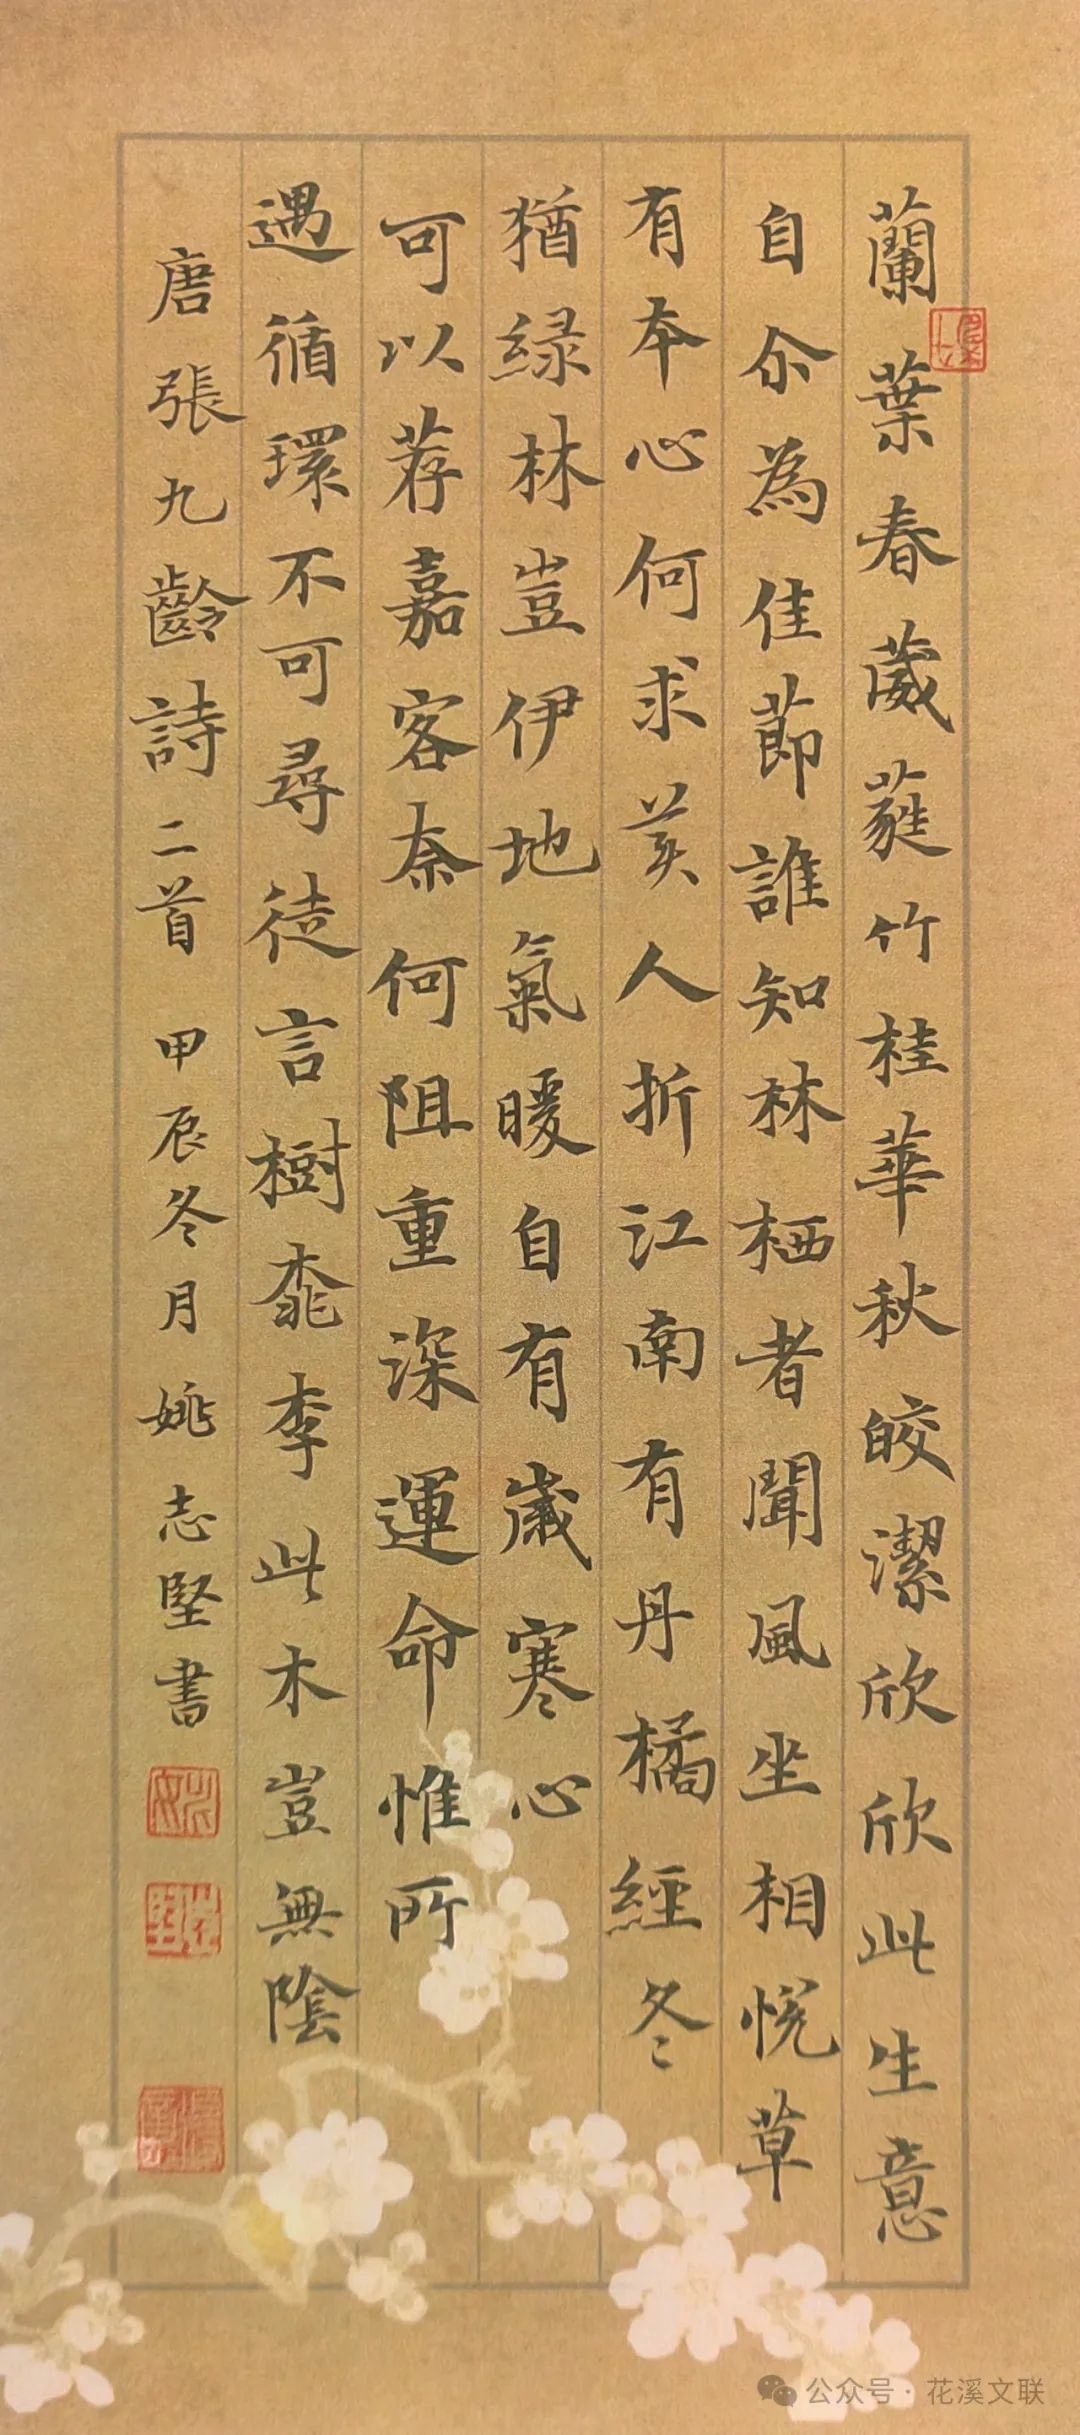 蘭葉春葳蕤竹桂華秋皎潔欣欣此生意
自尒為佳節誰知林栖者聞風坐相悅草
有本心何求美人折江南有丹橘經冬
猶緑林豈伊地氣暖自有歲寒心
可以荐嘉客奈何阻重深運命惟所
遇循環不可尋徒言樹桃李此木豈無陰
唐張九齡詩二首 甲辰冬月姚志堅書
公众号·花溪文联